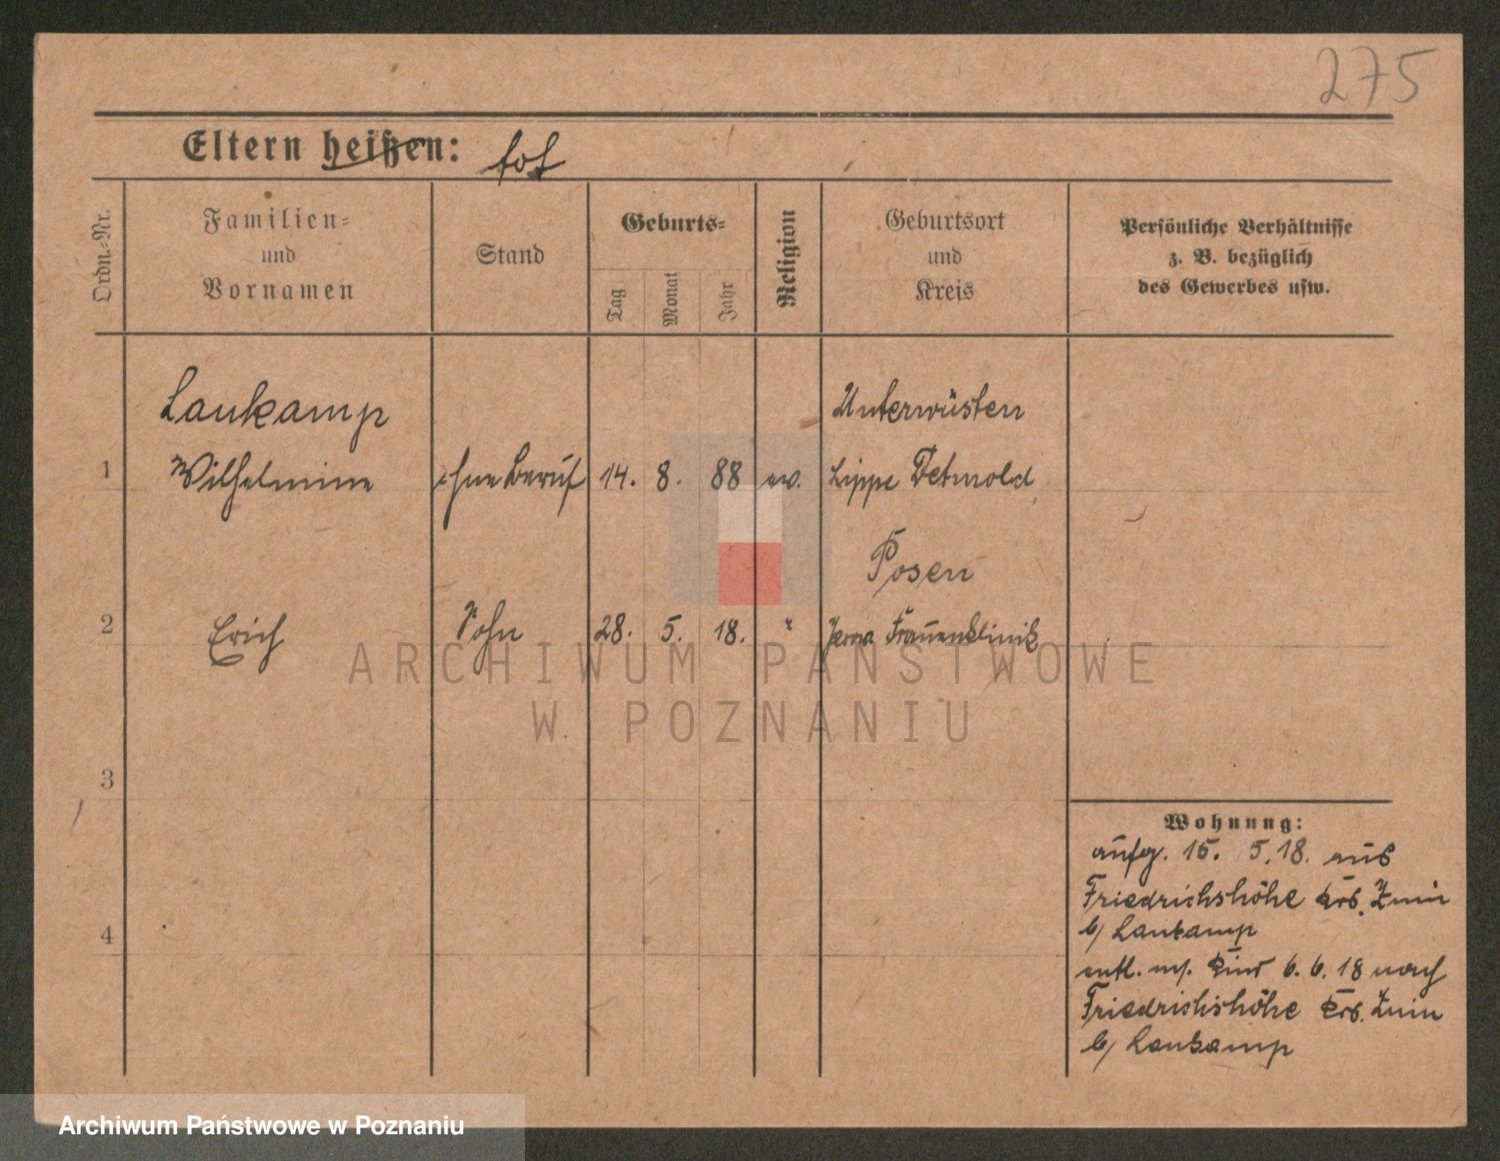 275
Eltern heißen: tot
Ordn.-Nr.
Familien-
und
Vornamen
Stand
Geburts-
Tag
Monat
Jahr
Religion
Geburtsort
und
Kreis
Persönliche Verhältnisse
z. B. bezüglich
des Gewerbes usw.
Laukamp
Unterwüsten
1 Wilhelmine ohne Beruf 14. 8. 88 ev. Lippe Detmold
Posen
2 Erich Sohn 28. 5. 18. " Frauenklinik
ARCHIWUM PAŃSTWOWE
W POZNANIU
3
4
Wohnung:
aufg. 15. 5. 18. aus
Friedrichshöhe Krs. Znin
b/ Laukamp
entl. m/. Kind 6. 6. 18 nach
Friedrichshöhe Krs. Znin
b/ Laukamp
Archiwum Państwowe w Poznaniu